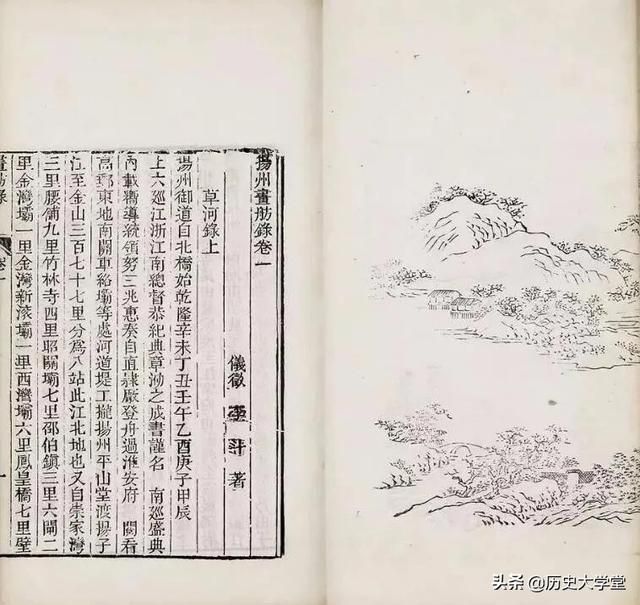 揚州畫舫錄卷一
儀徵 李斗 著
草河錄上
揚州御道自北橋始乾隆辛未丁丑壬午乙酉庚子甲辰
上六廵江浙江南總督恭紀典章泐之成書謹名 南廵盛典
內載嚮導統領努三兆惠奏自直隸厰登舟過淮安府 閱看
高郵東地南關車絡壩等處河道堤工攏揚州平山堂渡揚子
江至金山三百七十七里分爲八站此江北地也又自崇家灣
三里腰舖九里竹林寺四里昭關壩七里邵伯鎮三里六閘二
里金灣壩一里金灣新滚壩一里西灣壩六里鳳皇橋七里壁
畫舫錄 卷一 一
头条 @历史大学堂